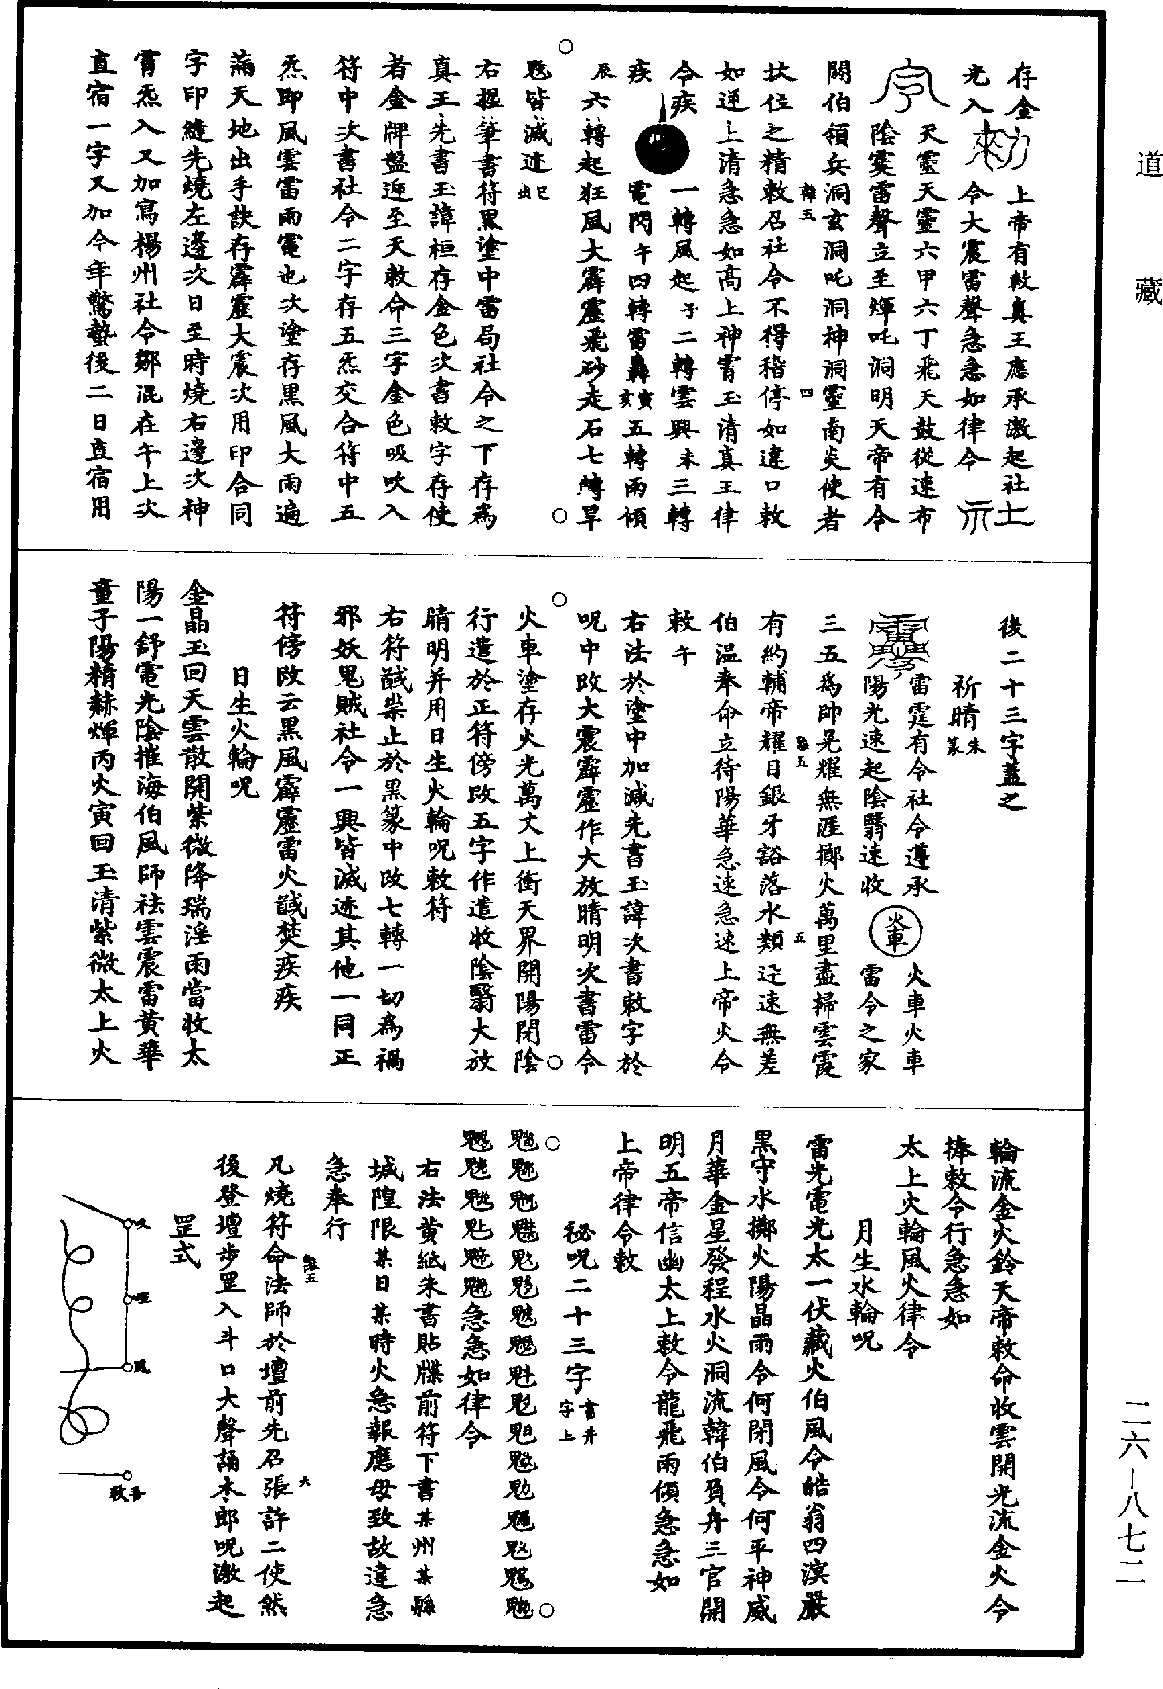 道藏
存金
光入
上帝有敕真王應承激起社
令大震雷聲急急如律令
天靈天靈六甲六丁飛天鼓從速布
陰霙雷聲立至煇吒洞明天帝有令
關伯領兵洞玄洞吒洞神洞靈南炎使者
扶住之精敕召社令不得稽停如違口敕
如逆上清急急如高上神霄玉清真王律
令疾
一轉風起子二轉雲興未三轉
疾
電閃午四轉雷轟寅亥五轉雨傾
辰六轉起狂風大霹靂飛砂走石七轉旱
魃皆滅迹巳出
右握筆書符黑塗中雷局社令之下存為
真王先書玉諱桓存金色次書敕字存使
者金牌盤迎至天敕命三字金色吸吹入
符中次書社令二字存五炁交合符中五
炁即風雲雷雨電也次塗存黑風大雨遍
滿天地出手訣存霹靂大震次用印合同
字印縫先燒左邊次日至時燒右邊次神
霄炁入又加寫楊州社令鄒混在午上次
直宿一字又加今年驚蟄後二日直宿用
後二十三字蓋之
祈晴朱篆
雷霆有令社令遵承
陽光速起陰翳速收
火車
火車火車
雷令之家
三五為帥晃耀無涯擲火萬里盡掃雲霞
有約輔帝耀日銀牙豁落水類迂速無差
伯溫奉命立待陽華急速急速上帝火令
敕午
右法於塗中加減先書玉諱次書敕字於
呪中改大震霹靂作大放晴明次書雷令
火車塗存火光萬丈上衝天界開陽閉陰
行遣於正符傍改五字作遣收陰翳大放
晴明并用日生火輪呪敕符
右符馘祟止於黑篆中改七轉一切為禍
邪妖鬼賊社令一興皆滅迹其他一同正
符傍改云黑風霹靂雷火馘焚疾疾
日生火輪呪
金晶玉回天雲散開紫微降瑞淫雨當收太
陽一舒電光陰摧海伯風師祛雲震雷黃華
童子陽精赫煇丙火寅回玉清紫微太上火
輪流金火鈴天帝敕命收雲開光流金火令
捧敕令行急急如
太上火輪風火律令
月生水輪呪
雷光電光太一伏藏火伯風令皓翁四溟嚴
黑守水擲火陽晶雨令何閉風令何平神威
月華金星發程水火洞流韓伯負舟三官開
明五帝信幽太上敕令龍飛雨傾急急如
上帝律令敕
祕呪二十三字書井字上
急急如律令
右法黃紙朱書貼牒前符下書某州某縣
城隍限某日某時火急報應毋致故違急
急奉行
凡燒符命法師於壇前先召張許二使然
後登壇步罡入斗口大聲誦木郎呪激起
罡式
二六—八七二